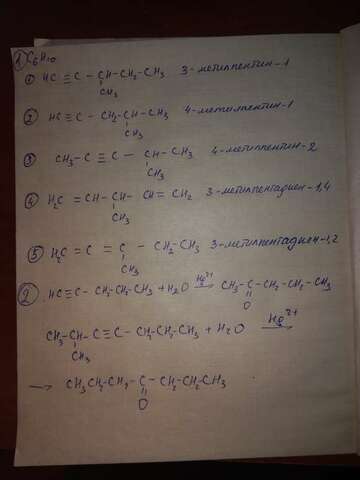 1) C6H10
① HC ≡ C - CH - CH2 - CH3 3-метилпентин-1
CH3
② HC ≡ C - CH2 - CH - CH3 4-метилпентин-1
CH3
③ CH3 - C ≡ C - CH - CH3 4-метилпентин-2
CH3
④ H2C = CH - CH - CH = CH2 3-метилпентадиен-1,4
CH3
⑤ H2C = C = C - CH2 - CH3 3-метилпентадиен-1,2
CH3
② HC ≡ C - CH2 - CH2 - CH3 + H2O Hg2+ → CH3 - C - CH2 - CH2 - CH3
O
CH3 - CH - C ≡ C - CH2 - CH2 - CH3 + H2O Hg2+ →
CH3
→ CH3CH2 - CH2 - C - CH2 - CH2 - CH3
O